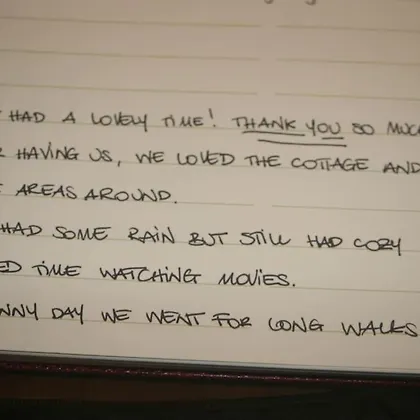 HAD A LOVELY TIME! THANK YOU SO MUC
HAVING US, WE LOVED THE COTTAGE AND
AREAS AROUND.
HAD SOME RAIN BUT STILL HAD COZY
ED TIME WATCHING MOVIES.
NNY DAY WE WENT FOR LONG WALKS